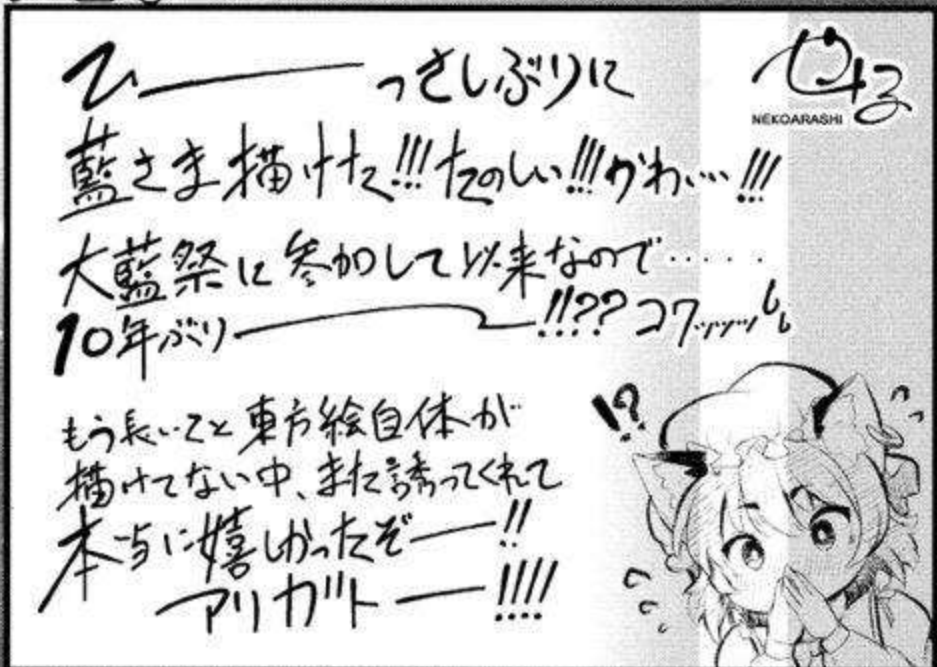 ひーーっさしぶりに
藍さま描けた!!!たのしい!!!かわ…!!!
大藍祭に参加して以来なので‥‥‥
10年ぶりーーー!!??コワッッッ
もう長いこと東方絵自体が
描けてない中、また誘ってくれて
本当に嬉しかったぞー!!
アリガトー!!!!
NEKOARASHI
!?